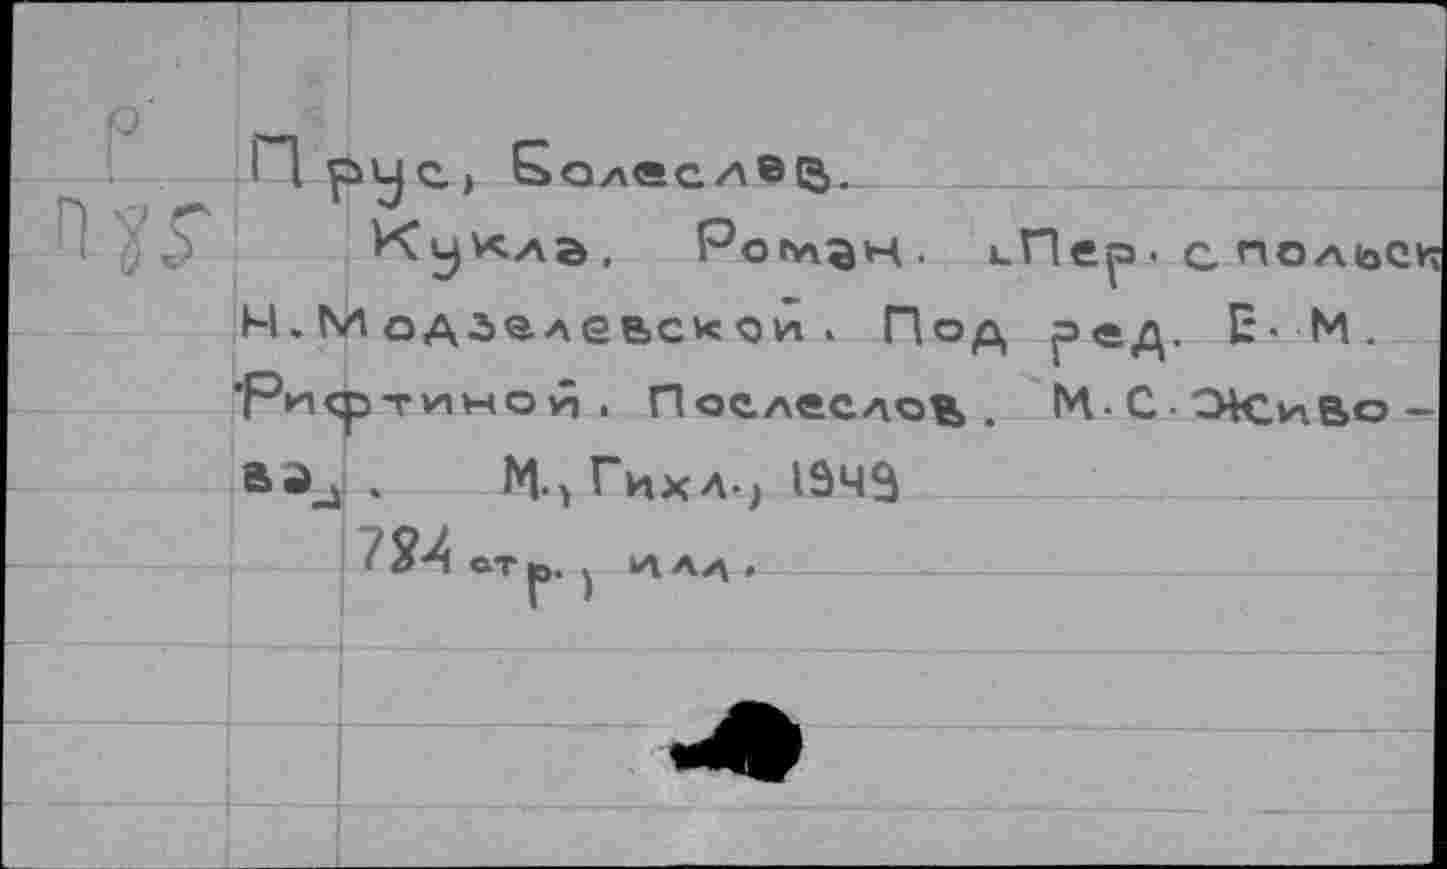 Р
П85
Прус, Болеслав.
Кукла. Роман. [Пер. с польск
Н. Модзелевской. Под ред. Е. М.
Рифтиной. Послеслов. М. С. Живо-
ва] . М., Гихл., 1949
784 стр., илл.